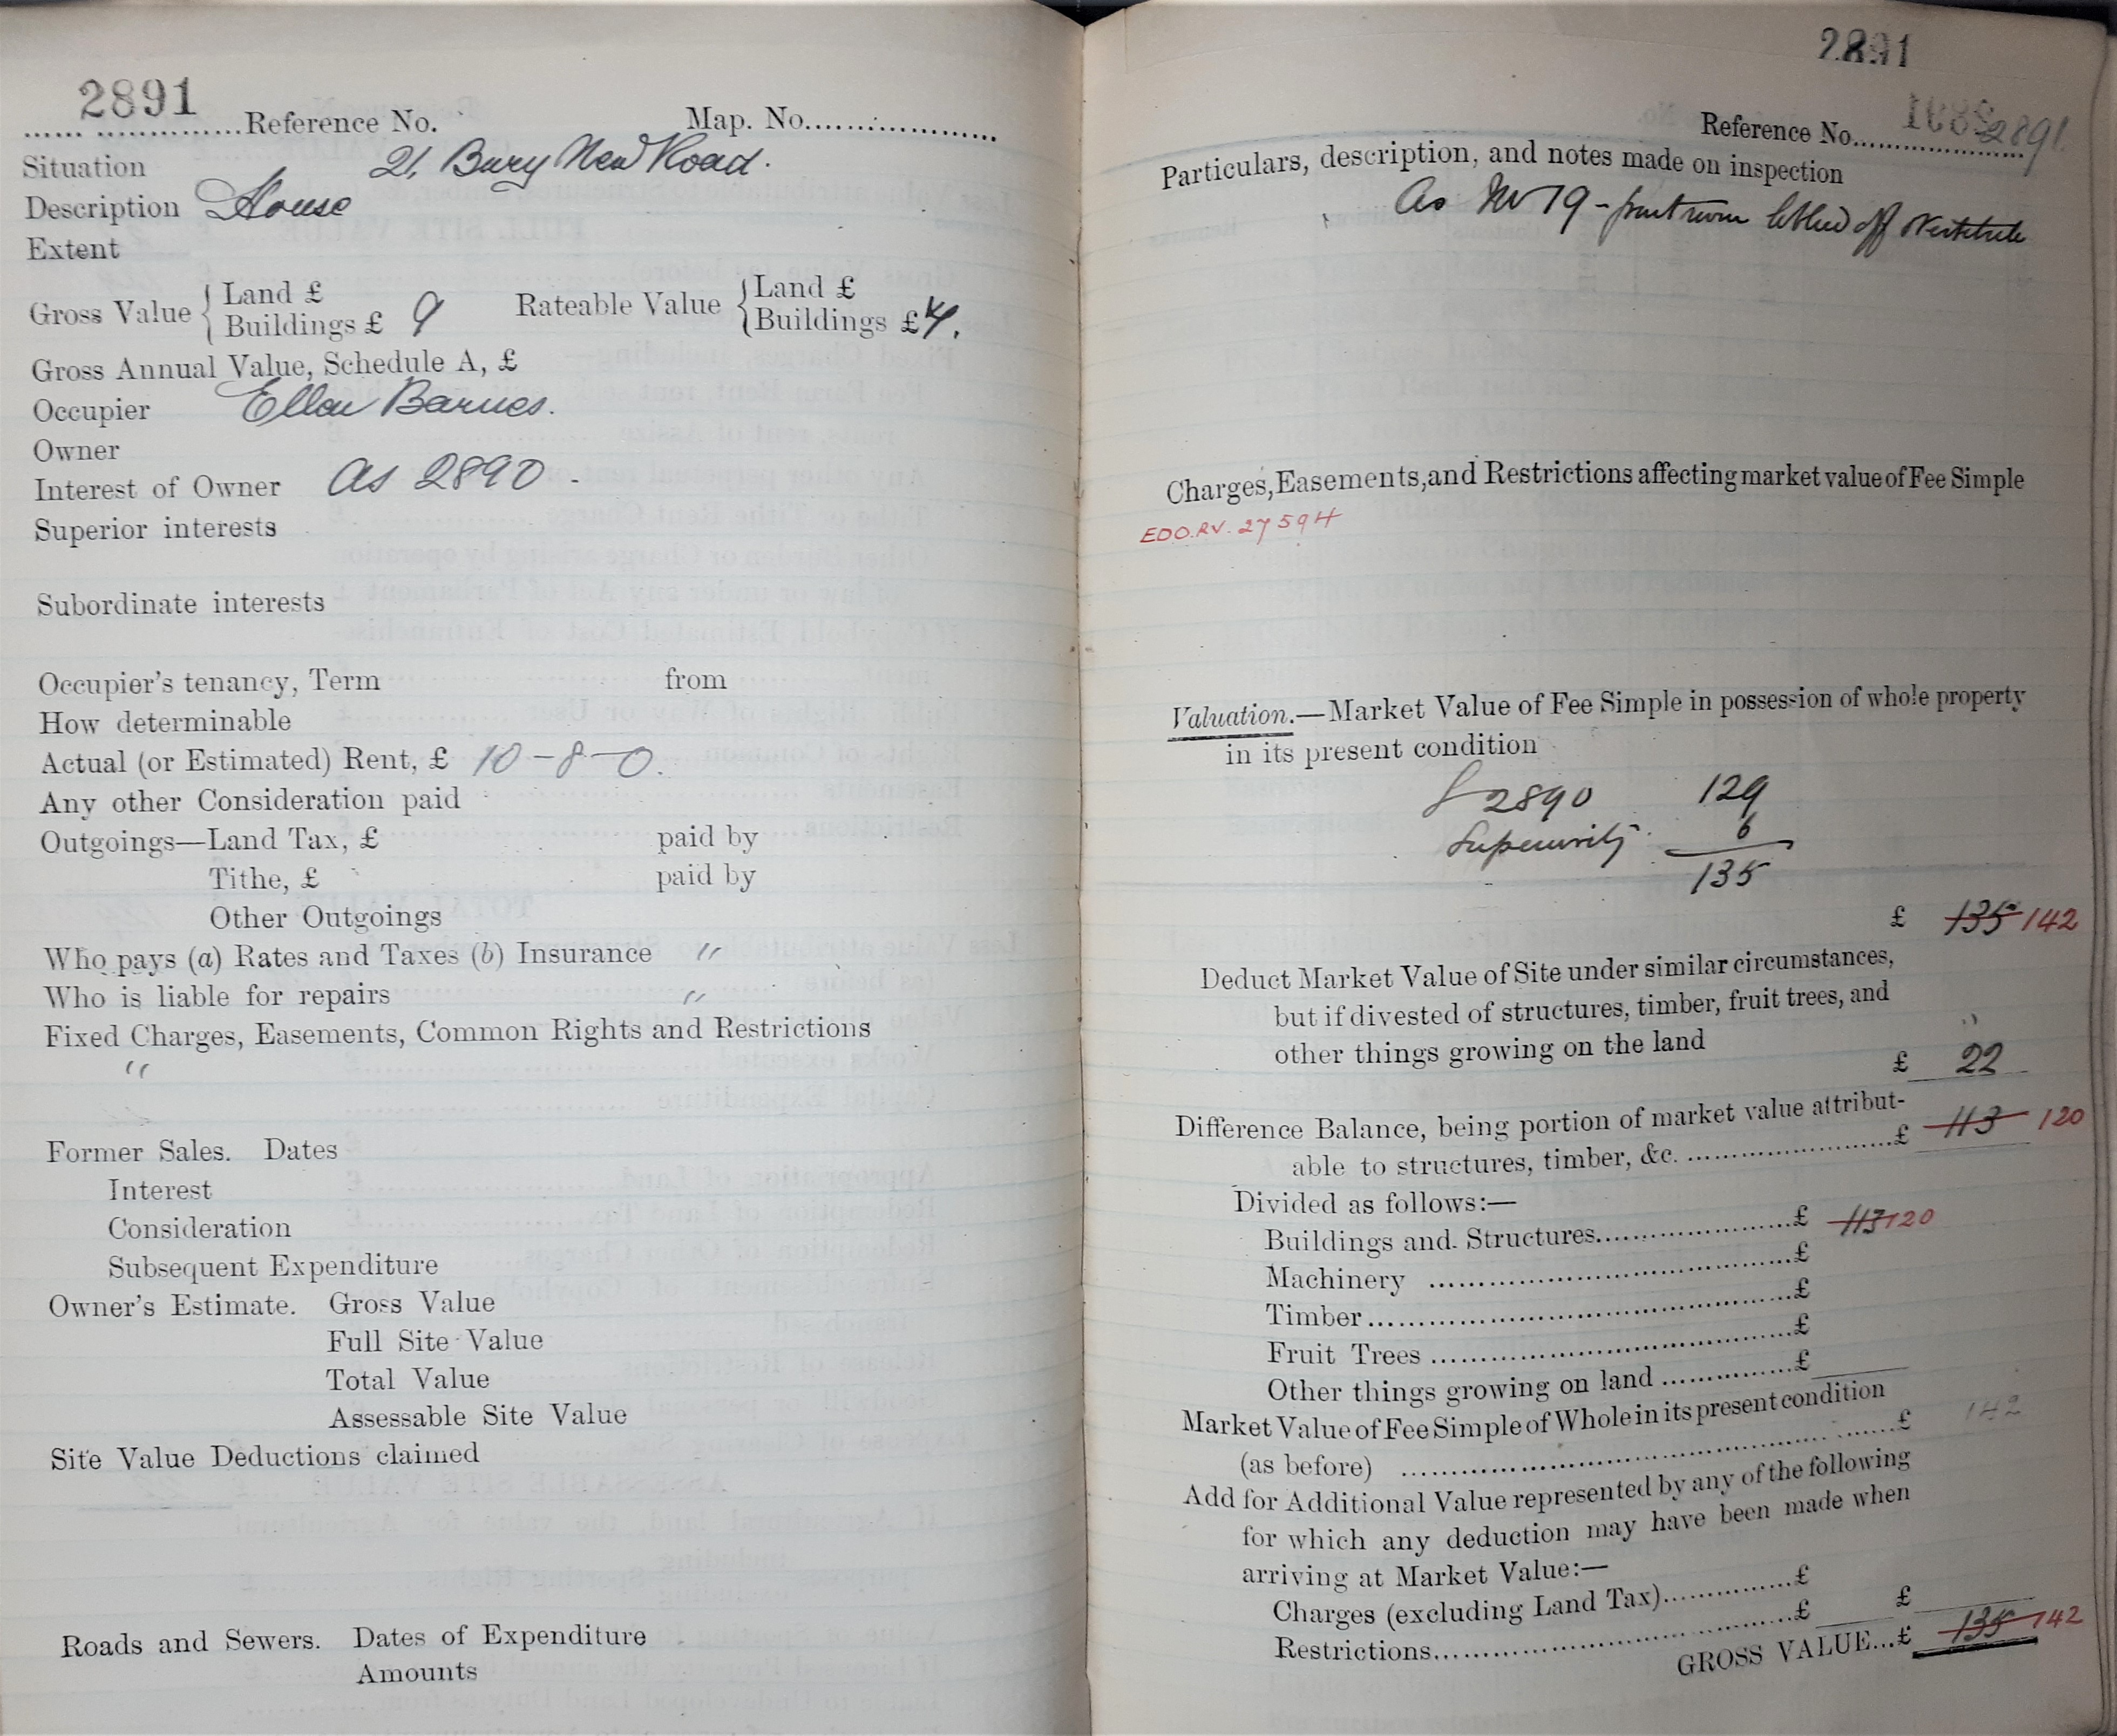 2891
Reference No. Map. No.
Situation 21, Bury New Road.
Description House
Extent
Gross Value { Land £
Buildings £ 9
Rateable Value { Land £
Buildings £
Gross Annual Value, Schedule A, £
Occupier Ellen Barnes.
Owner
Interest of Owner As 2890 -
Superior interests
Subordinate interests
Occupier's tenancy, Term from
How determinable
Actual (or Estimated) Rent, £ 10-8-0.
Any other Consideration paid
Outgoings—Land Tax, £ paid by
Tithe, £ paid by
Other Outgoings
Who pays (a) Rates and Taxes (b) Insurance "
Who is liable for repairs "
Fixed Charges, Easements, Common Rights and Restrictions
"
Former Sales. Dates
Interest
Consideration
Subsequent Expenditure
Owner's Estimate. Gross Value
Full Site Value
Total Value
Assessable Site Value
Site Value Deductions claimed
Roads and Sewers. Dates of Expenditure
Amounts
2891
Reference No. 2891
Particulars, description, and notes made on inspection
As No 19 - front room off
Charges, Easements, and Restrictions affecting market value of Fee Simple
EDO.RV. 27594
Valuation.—Market Value of Fee Simple in possession of whole property
in its present condition
2890 129
Superiority 6
135
£ 135 142
Deduct Market Value of Site under similar circumstances,
but if divested of structures, timber, fruit trees, and
other things growing on the land
£ 22
Difference Balance, being portion of market value attribut-
able to structures, timber, &c. £ 113 120
Divided as follows:—
Buildings and Structures £ 113 120
Machinery £
Timber £
Fruit Trees £
Other things growing on land £
Market Value of Fee Simple of Whole in its present condition
(as before) £ 142
Add for Additional Value represented by any of the following
for which any deduction may have been made when
arriving at Market Value:—
Charges (excluding Land Tax) £
Restrictions £ £
GROSS VALUE...£ 135 142